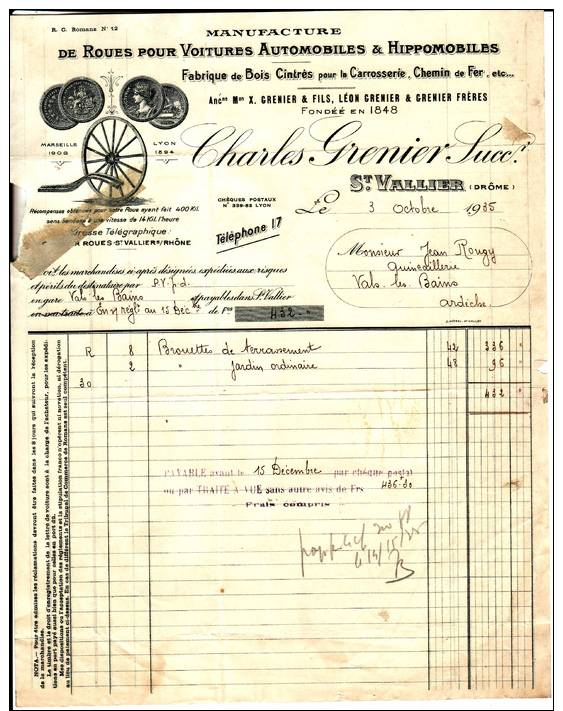 R. C. Romans N° 12
MANUFACTURE
DE ROUES POUR VOITURES AUTOMOBILES & HIPPOMOBILES
Fabrique de Bois Cintrés pour la Carrosserie, Chemin de Fer, etc...
Ancne Mon X. GRENIER & FILS, LÉON GRENIER & GRENIER FRÈRES
FONDÉE EN 1848
MARSEILLE 1908
LYON 1894
Charles Grenier Succr
ST VALLIER (DRÔME)
CHÈQUES POSTAUX
N° 339-82 LYON
Le 3 Octobre 1935
Téléphone 17
Récompense obtenues pour notre Roue ayant fait 400 Kil.
sans bandage à une vitesse de 14 Kil. l'heure
Adresse Télégraphique:
ROUES-ST-VALLIER S/RHÔNE
Monsieur Jean Rougy
Quincaillerie
Vals les Bains
Ardèche
les marchandises ci-après désignées expédiées aux risques
et périls du destinataire par P.V. p.d.
en gare Vals les Bains et payables dans St Vallier
au 15 Déc de Frs 432
R 8 Brouettes de terrassement 42 336 "
2 " Jardin ordinaire 48 96 "
30
432 "
PAYABLE avant le 15 Décembre par chèque postal
ou par TRAITE A VUE sans autre avis de Frs 436-30
Frais compris
NOTA. — Pour être admises les réclamations devront être faites dans les 8 jours qui suivront la réception
de la marchandise.
Le timbre et le droit d'enregistrement de la lettre de voiture sont à la charge de l'acheteur, pour les expédi-
tions en port payé aussi bien que pour celles en port dû.
Mes dispositions ou l'acceptation des règlements et la stipulation franco n'opèrent ni novation, ni dérogation
au lieu de paiement ci-dessus. En cas de différent le Tribunal de Commerce de Romans est seul compétent.